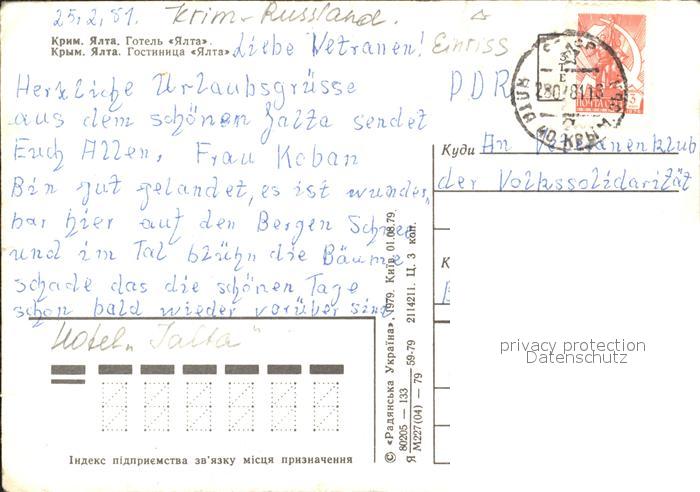 25.2.81. Krim-Russland.
Крим. Ялта. Готель «Ялта».
Крым. Ялта. Гостиница «Ялта»
Liebe Vetranen! Einriss
Herzliche Urlaubsgrüsse
aus dem schönen Jalta sendet
Euch Allen, Frau Koban
Bin gut gelandet, es ist wunder,,
bar hier auf den Bergen Schnee
und im Tal blühn die Bäume
schade das die schönen Tage
schon bald wieder vorüber sind
Hotel „Jalta"
DDR
ПОЧТА
Куди An Vetranenklub
der Volkssolidarität
К
privacy protection
Datenschutz
© «Радянська Україна», 1979. Київ. 01.08.79
80205 — 133 59-79 2114211. Ц. 3 коп.
Я М227(04) — 79
Індекс підприємства зв'язку місця призначення